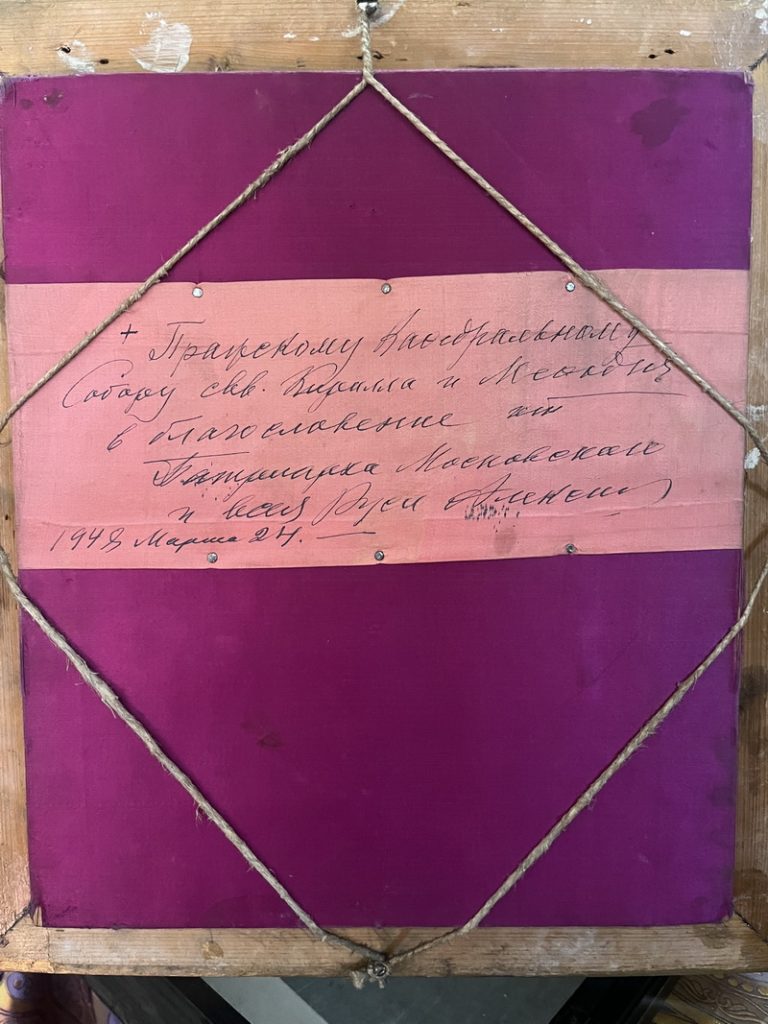 + Пражскому Кафедральному
Собору свв. Кирилла и Мефодия
в благословение от
Патриарха Московского
и всея Руси Алексия
1948 Марта 24.